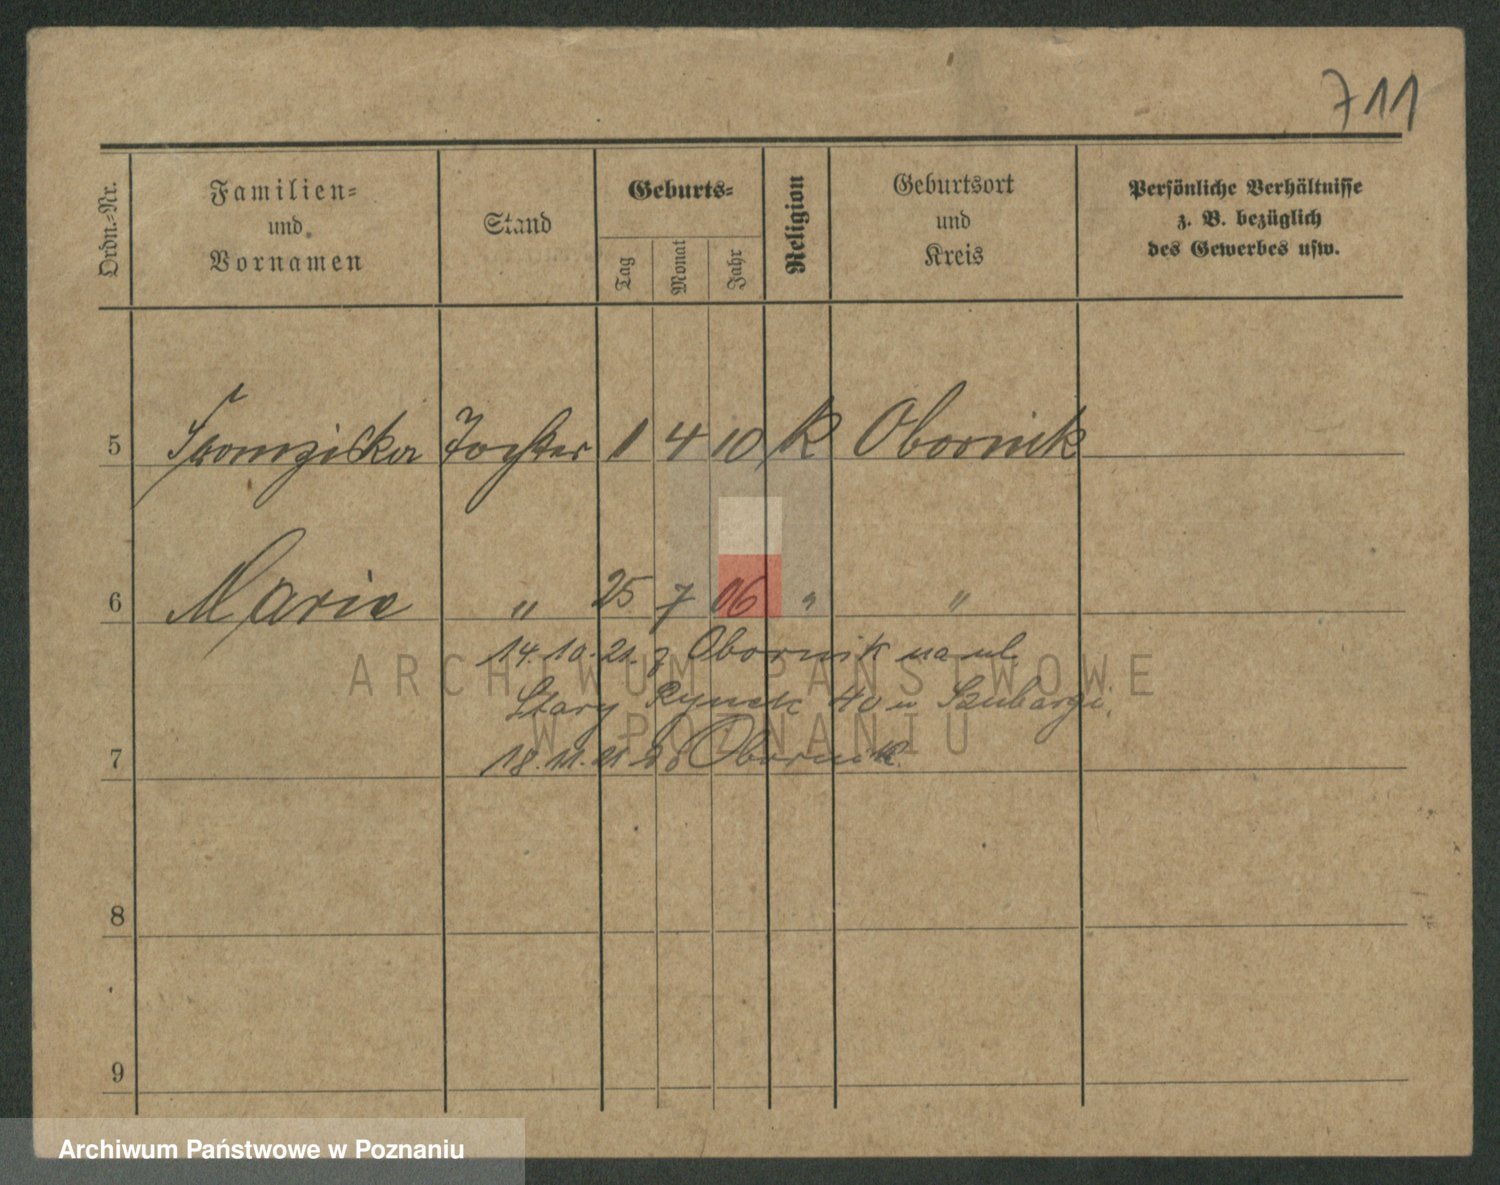 711
Ordn.-Nr.
Familien-
und
Vornamen
Stand
Geburts-
Tag
Monat
Jahr
Religion
Geburtsort
und
Kreis
Persönliche Verhältnisse
z. B. bezüglich
des Gewerbes usw.
5 Franziska Tochter 1 4 10 K Obornik
6 Marie " 25 7 06 " "
14.10.21. z Obornik na ul.
Stary Rynek 40 u Szubargi
7
18.11.21 Obornik.
8
9
ARCHIWUM PAŃSTWOWE
W POZNANIU
Archiwum Państwowe w Poznaniu